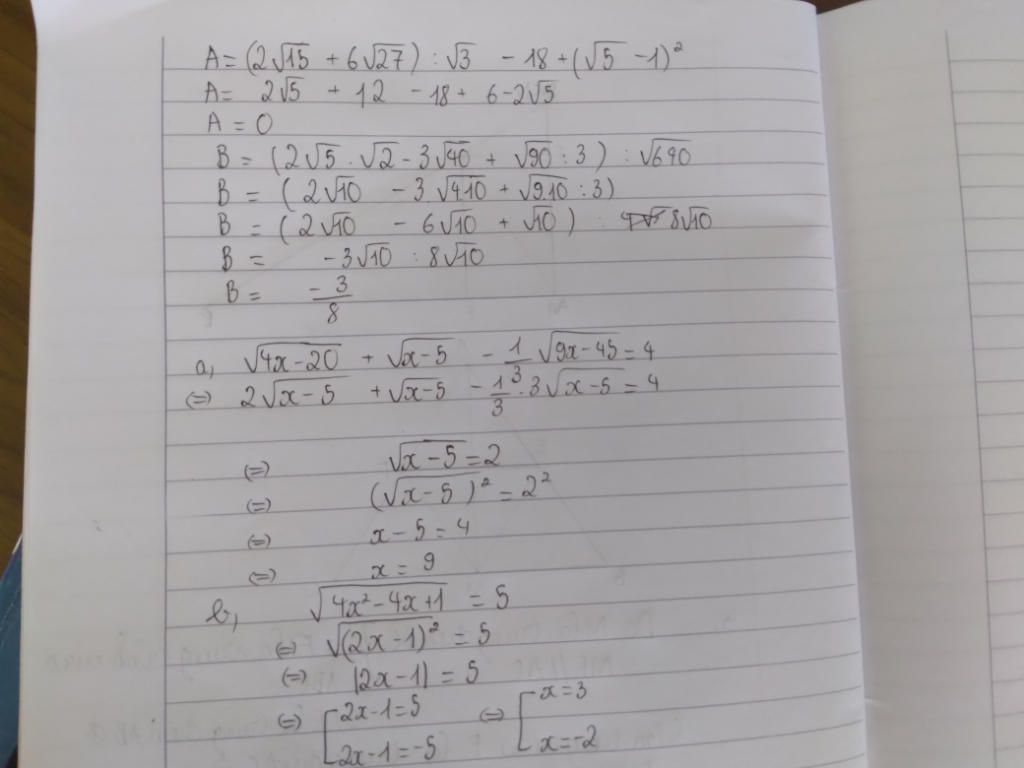 A = (2√15 + 6√27) : √3 - 18 + (√5 - 1)²
A = 2√5 + 12 - 18 + 6 - 2√5
A = 0
B = (2√5 . √2 - 3√40 + √90 : 3) : √640
B = (2√10 - 3√4.10 + √9.10 : 3)
B = (2√10 - 6√10 + √10) : 8√10
B = -3√10 : 8√10
B = -3/8
a, √(4x-20) + √(x-5) - 1/3 √(9x-45) = 4
(=) 2√(x-5) + √(x-5) - 1/3 . 3√(x-5) = 4
(=) √(x-5) = 2
(=) (√(x-5))² = 2²
(=) x - 5 = 4
(=) x = 9
b, √(4x²-4x+1) = 5
(=) √(2x-1)² = 5
(=) |2x-1| = 5
(=) [ 2x-1=5 (=) [ x=3
2x-1=-5 x=-2